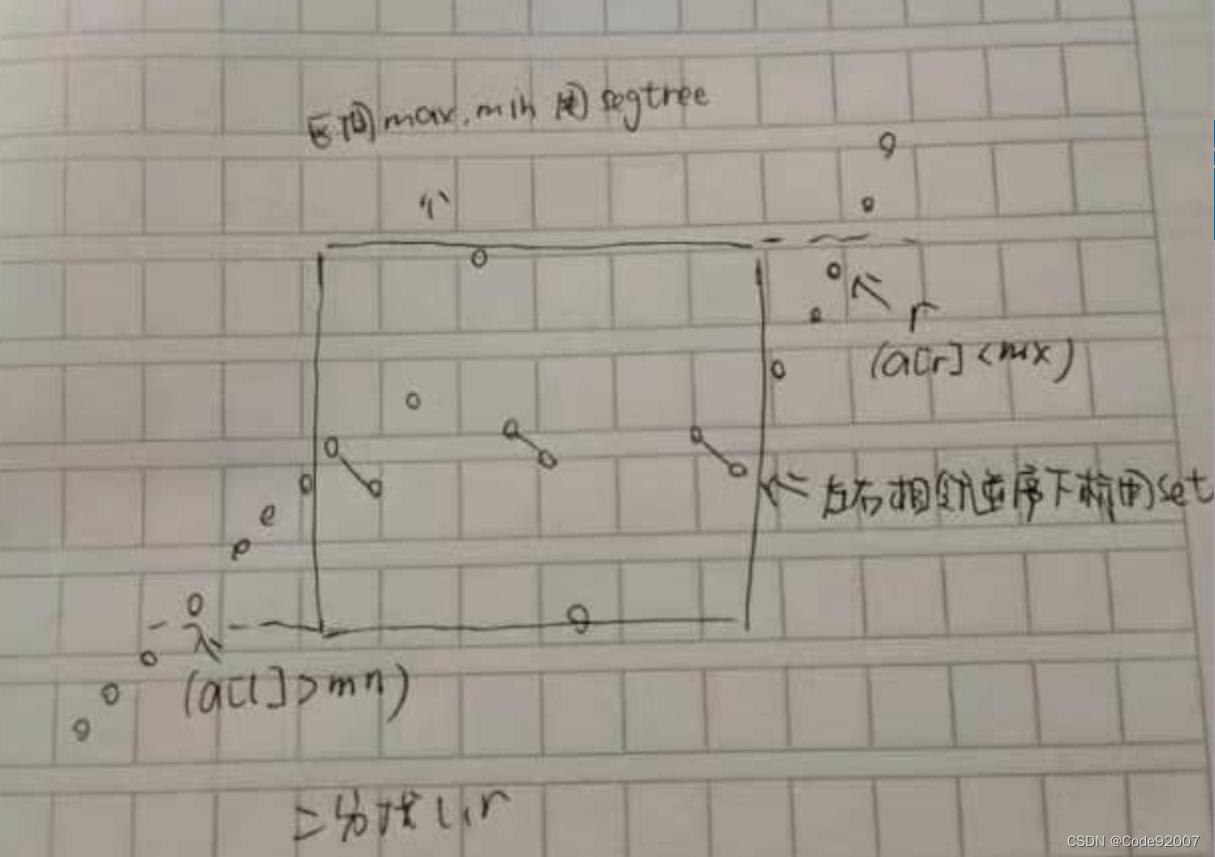 区间max,min 用segtree
r
(a[r]<mx)
左右相邻逆序下标用set
(a[l]>mn)
二分找l,r
CSDN @Code92007